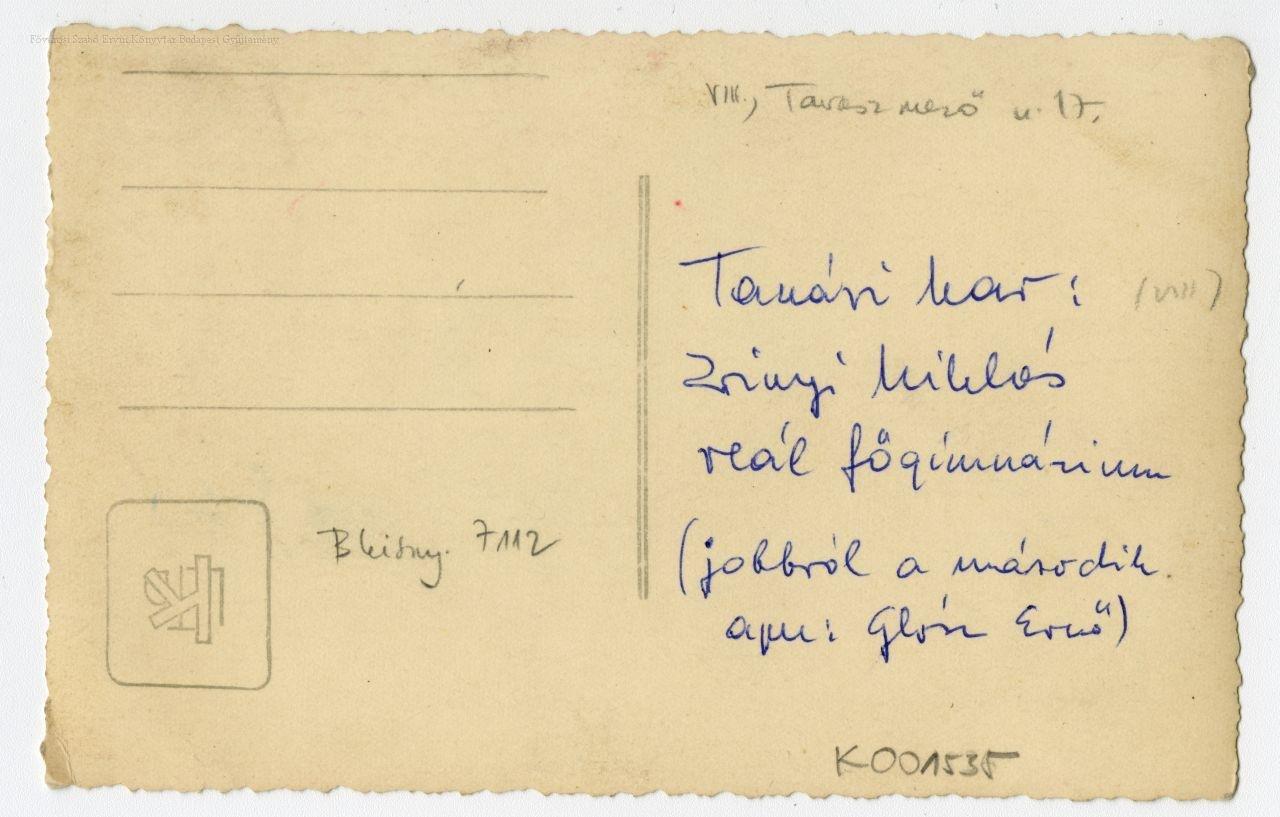 Fővárosi Szabó Ervin Könyvtár Budapest Gyűjtemény
VIII., Tavaszmező u. 17.
Tanári kar: (VIII)
Zrinyi Miklós
reál főgimnázium
(jobbról a második
apu: Glósz Ernő)
7112
K001535